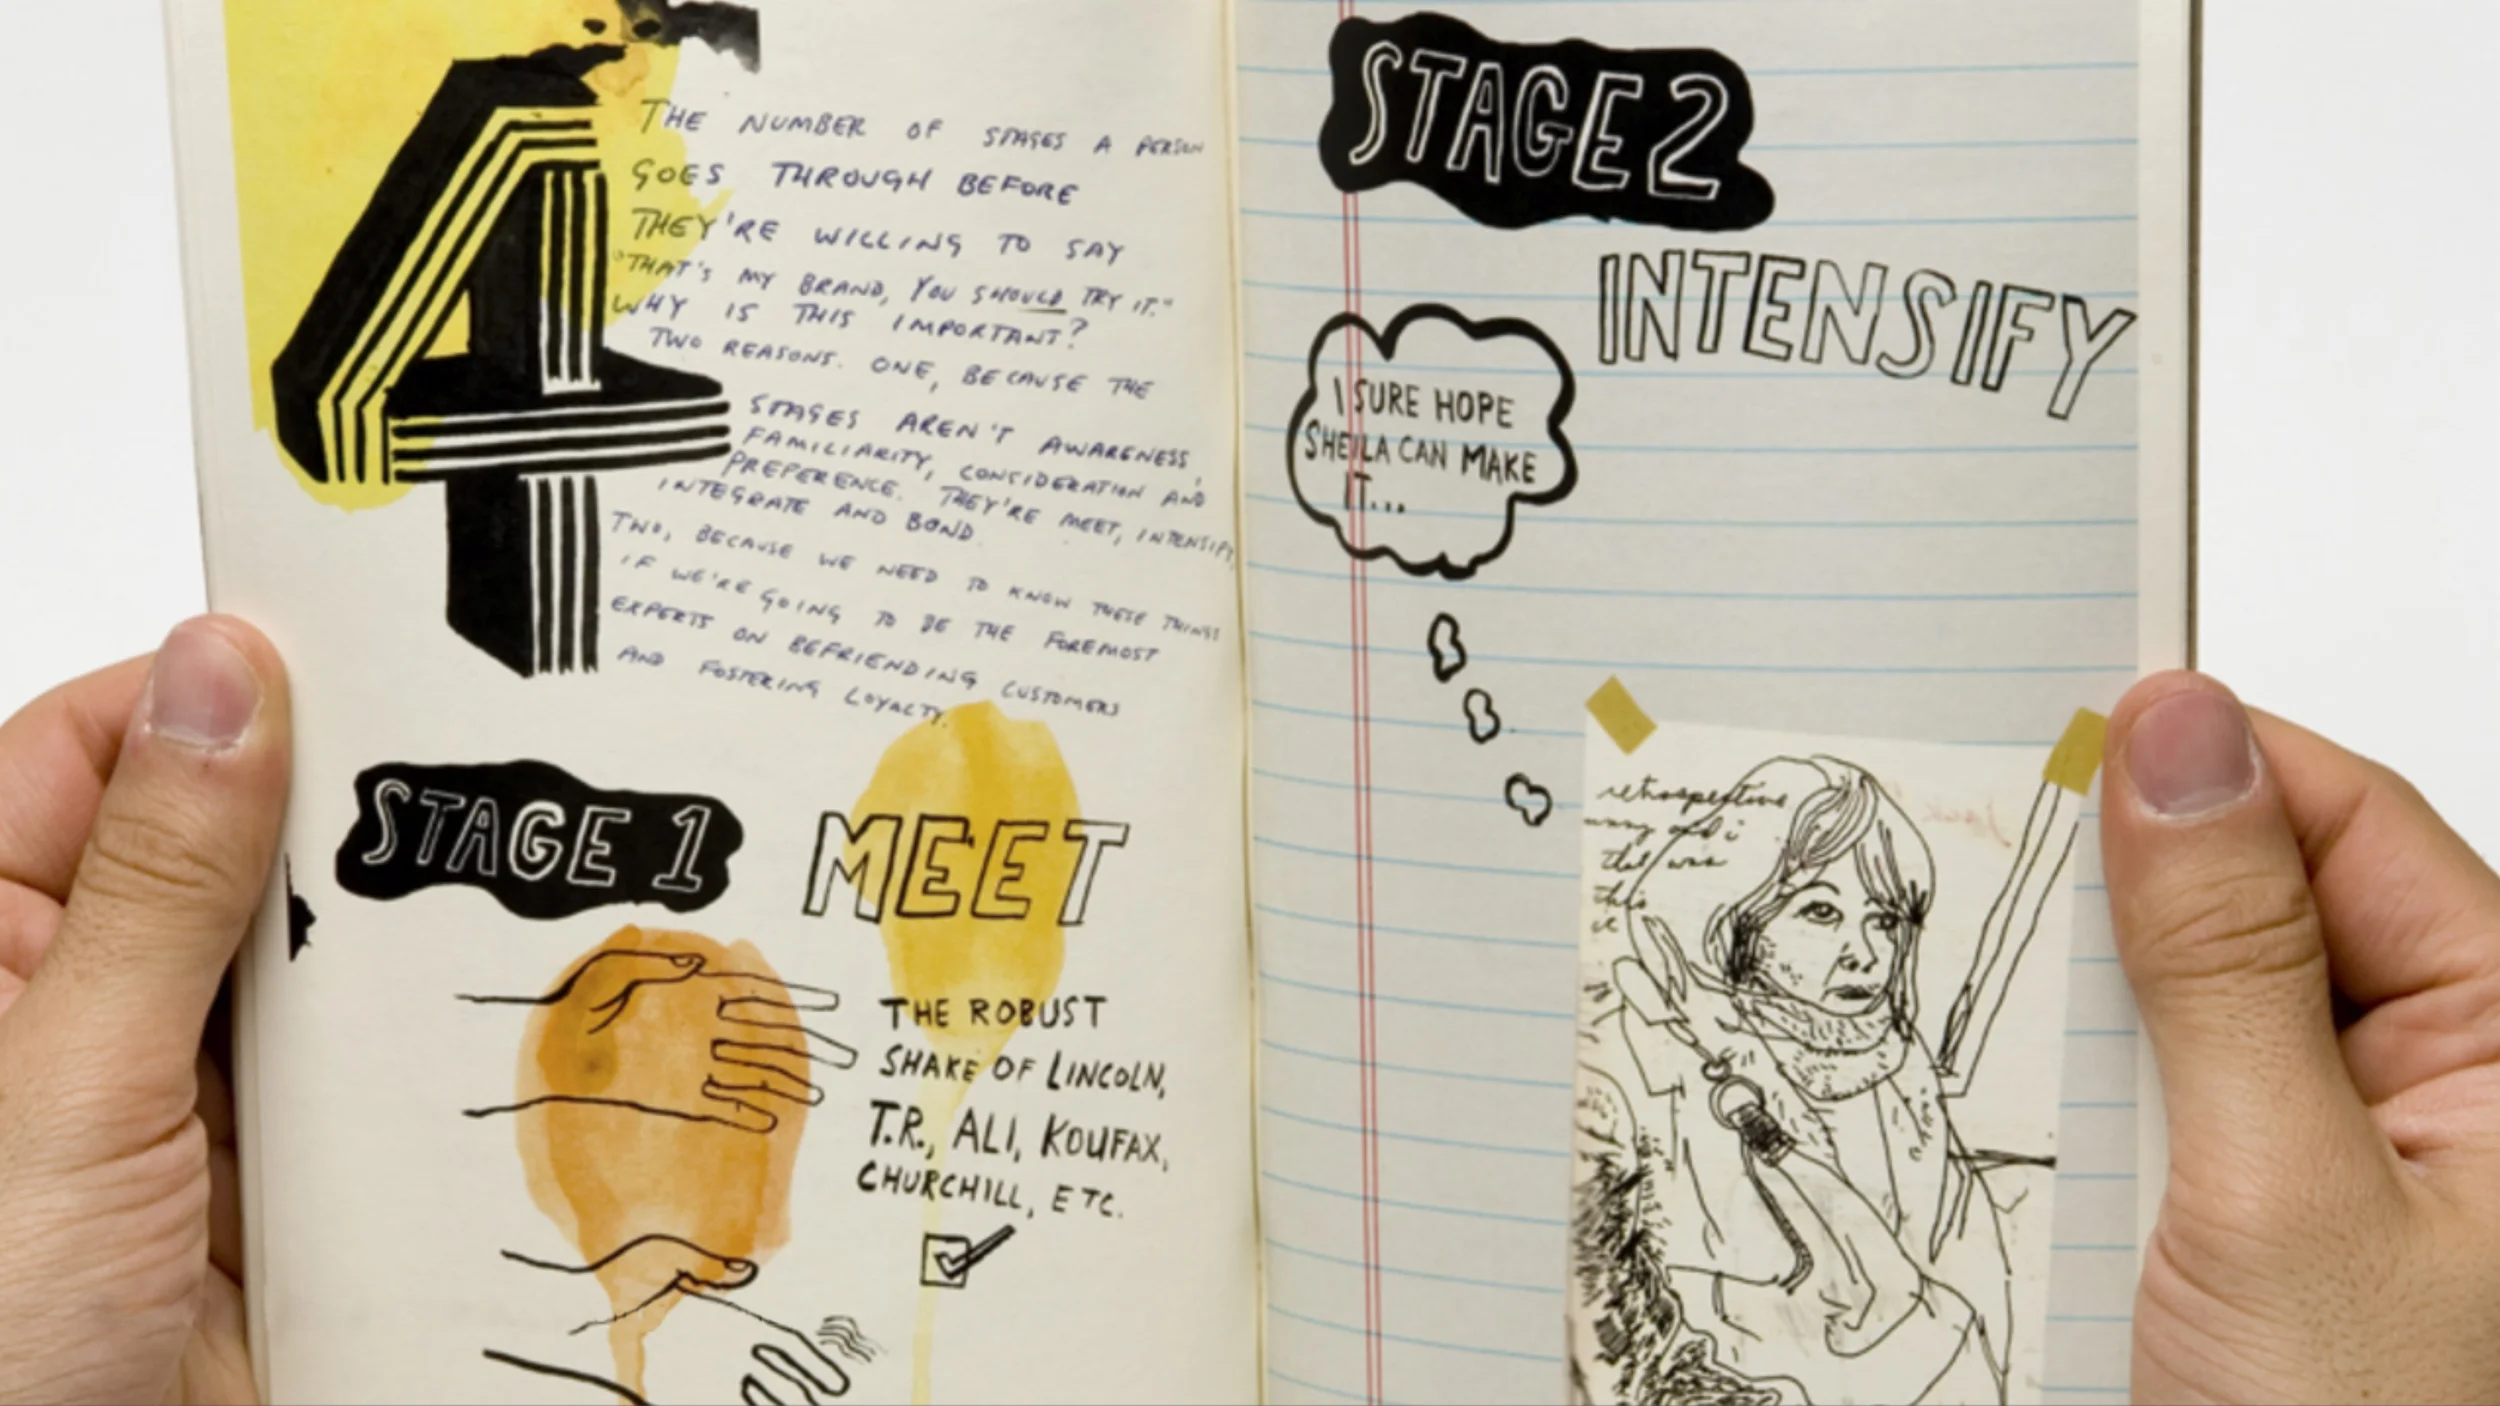 4
THE NUMBER OF STAGES A PERSON
GOES THROUGH BEFORE
THEY'RE WILLING TO SAY
"THAT'S MY BRAND, YOU SHOULD TRY IT."
WHY IS THIS IMPORTANT?
TWO REASONS. ONE, BECAUSE THE
STAGES AREN'T AWARENESS,
FAMILIARITY, CONSIDERATION AND
PREFERENCE. THEY'RE MEET, INTENSIFY,
INTEGRATE AND BOND.
TWO, BECAUSE WE NEED TO KNOW THESE THINGS
IF WE'RE GOING TO BE THE FOREMOST
EXPERTS ON BEFRIENDING CUSTOMERS
AND FOSTERING LOYALTY.
STAGE 1
MEET
THE ROBUST
SHAKE OF LINCOLN,
T.R., ALI, KOUFAX,
CHURCHILL, ETC.
STAGE 2
INTENSIFY
I SURE HOPE
SHEILA CAN MAKE
IT...
retrospective
and i
that was
this